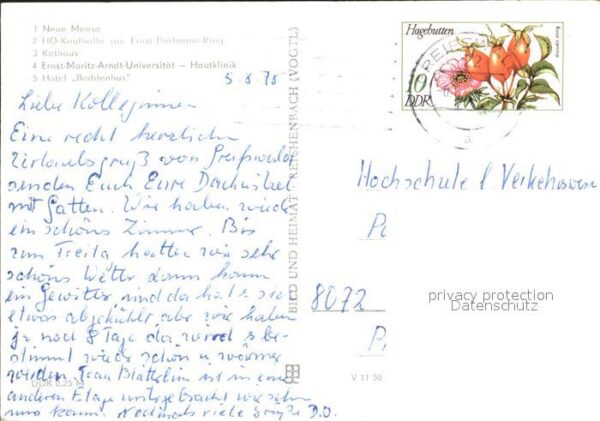 1 Neue Mensa
2 HO-Kaufhalle am Ernst-Thälmann-Ring
3 Rathaus
4 Ernst-Moritz-Arndt-Universität — Hautklinik
5 Hotel „Boddenhus"
5.8.78
Liebe Kolleginnen
Eine recht herzlichen
Urlaubsgruß von Greifswald
senden Euch Eure
mit Gatten. Wir haben wieder
ein schönes Zimmer. Bis
zum Freitag hatten wir sehr
schönes Wetter dann kam
ein Gewitter und da hat es sich
etwas abgekühlt aber wir haben
ja noch 8 Tage da wird es be-
stimmt wieder schön u wärmer
werden. Frau ist in einer
anderen Etage untergebracht wir sehen
uns kaum. Nochmals viele Grüße D.O.
DDR 0,25 M
BILD UND HEIMAT REICHENBACH (VOGTL)
V 11 50
Hagebutten
Rosa canina
10
DDR
Hochschule f. Verkehrswese
8072
privacy protection
Datenschutz